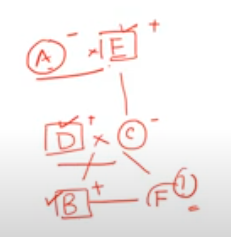 A - × E +
D + × C -
B + F ?